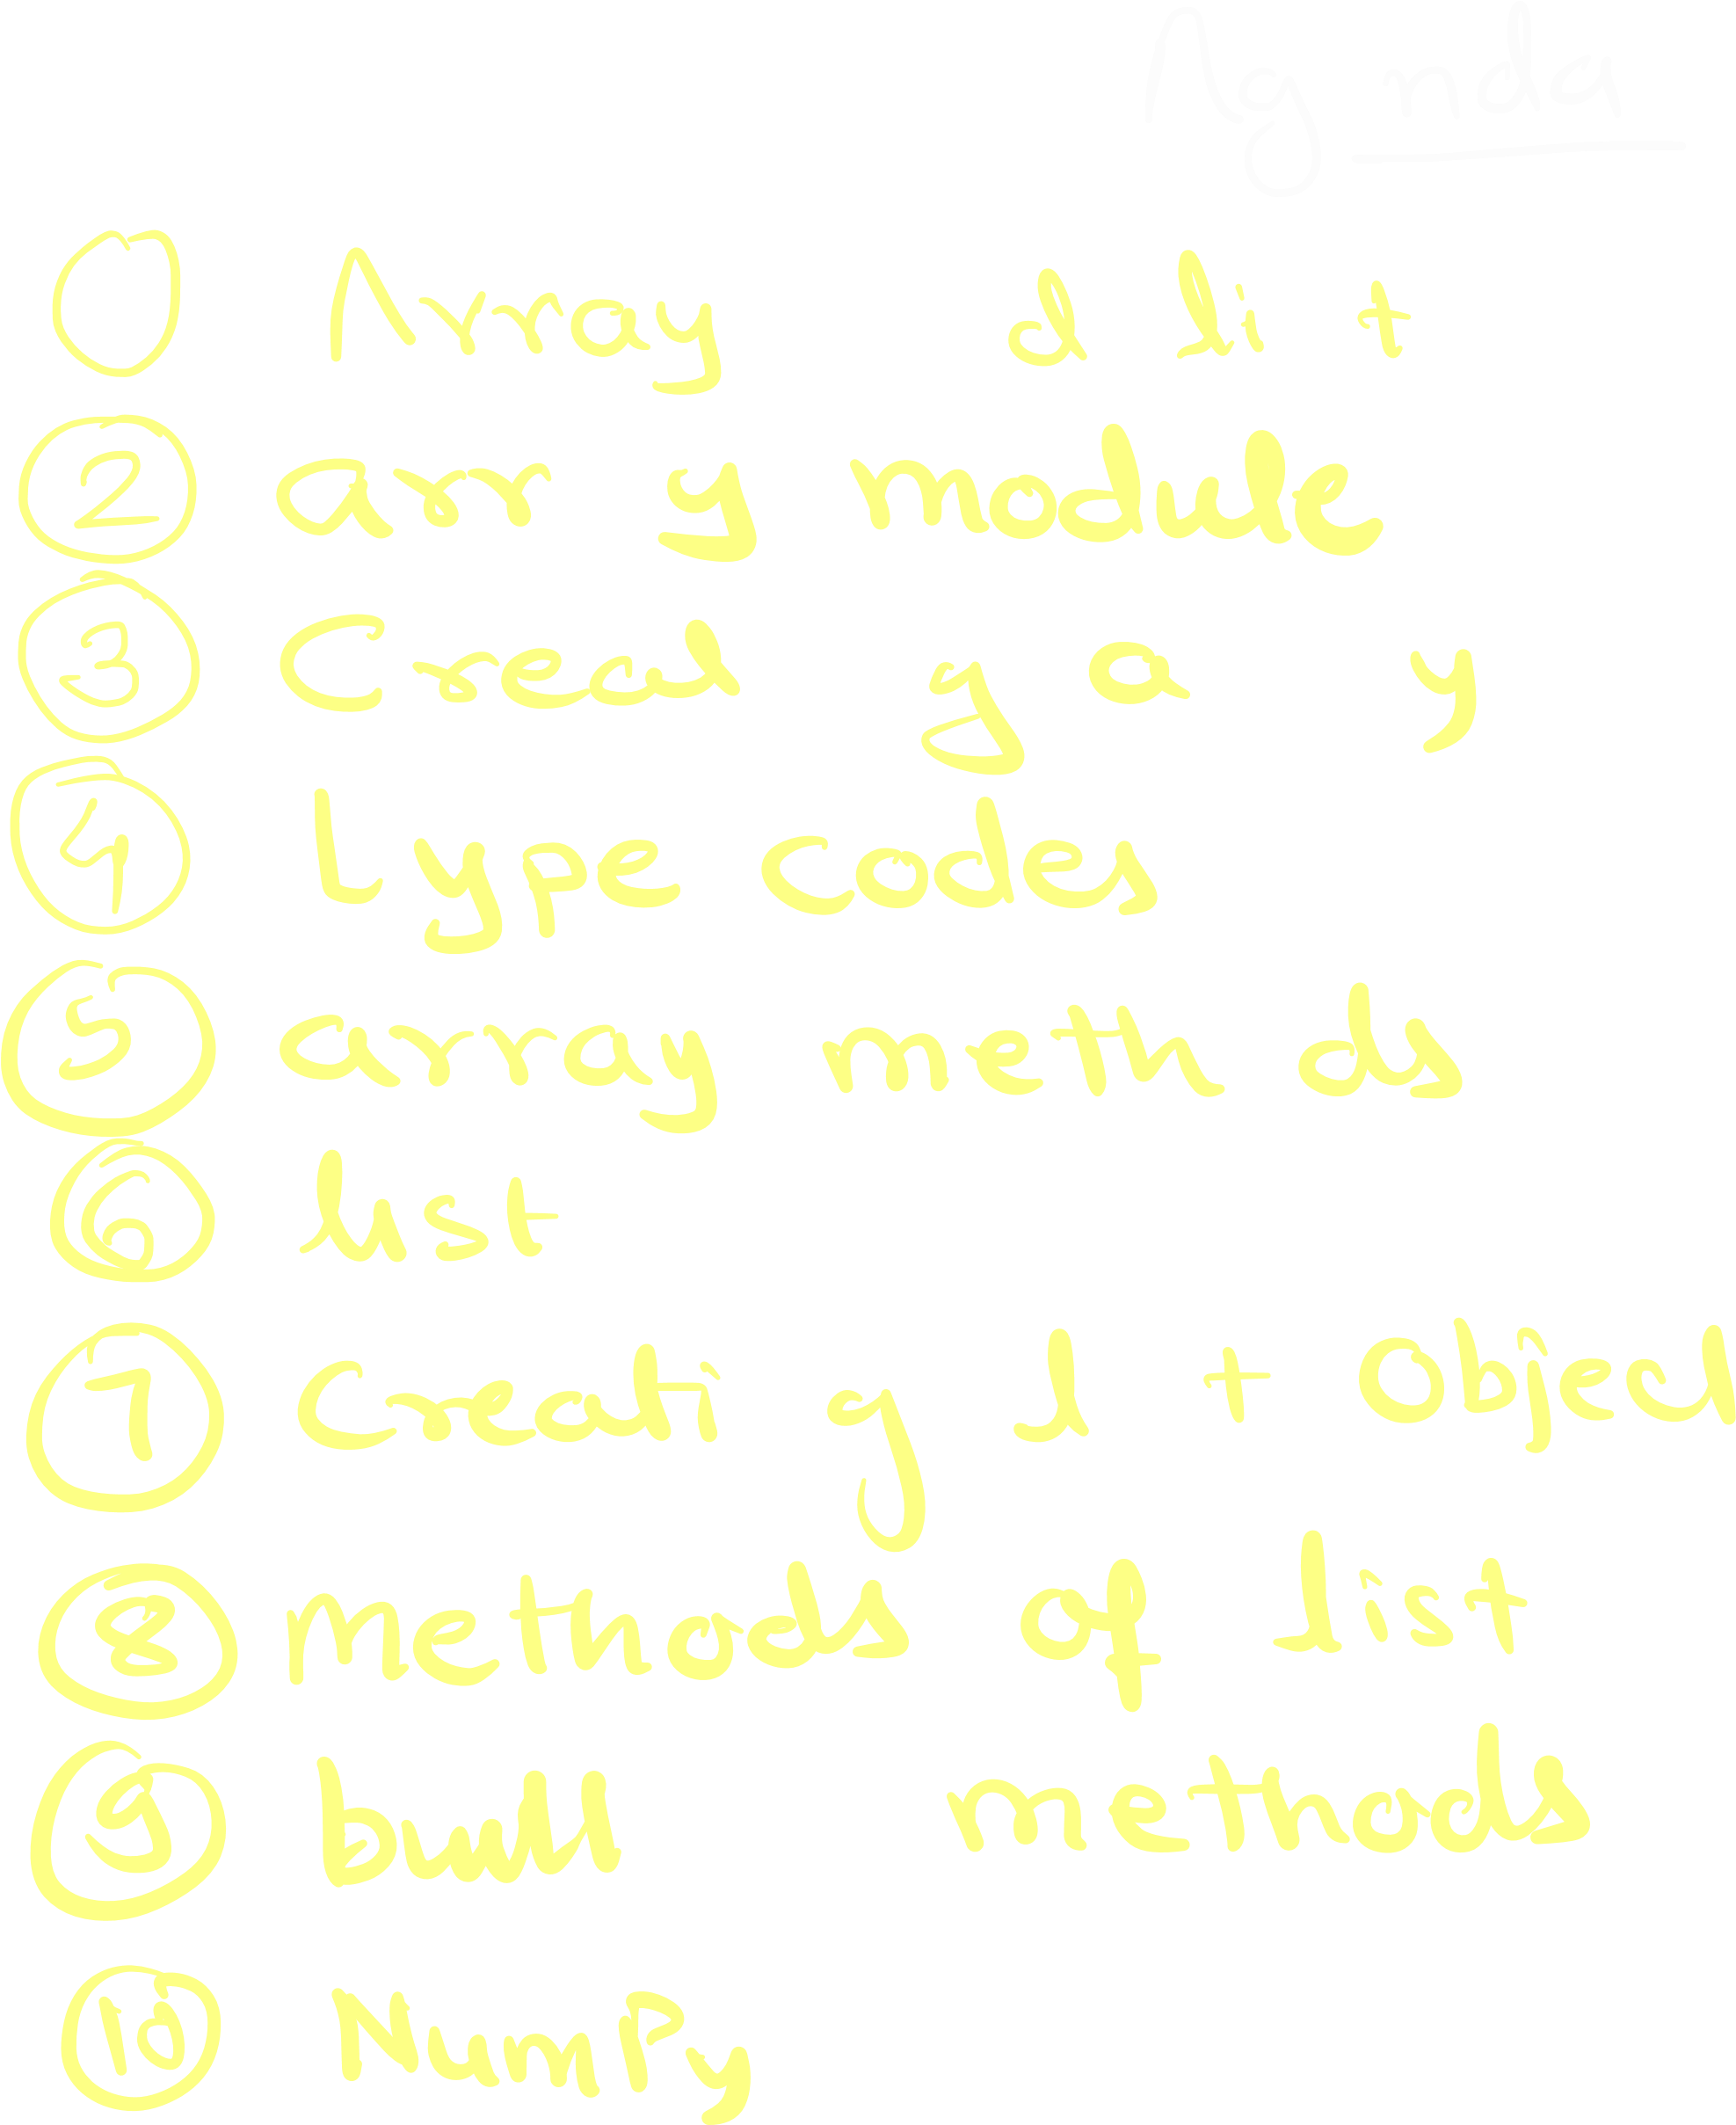 Ag nda
Array d lit
② array module
③ Creat g a y
④ type codes
⑤ array meth ds
⑥ list
⑦ Creati g l t Object
⑧ methods of list
⑨ methods
⑩ NumPy